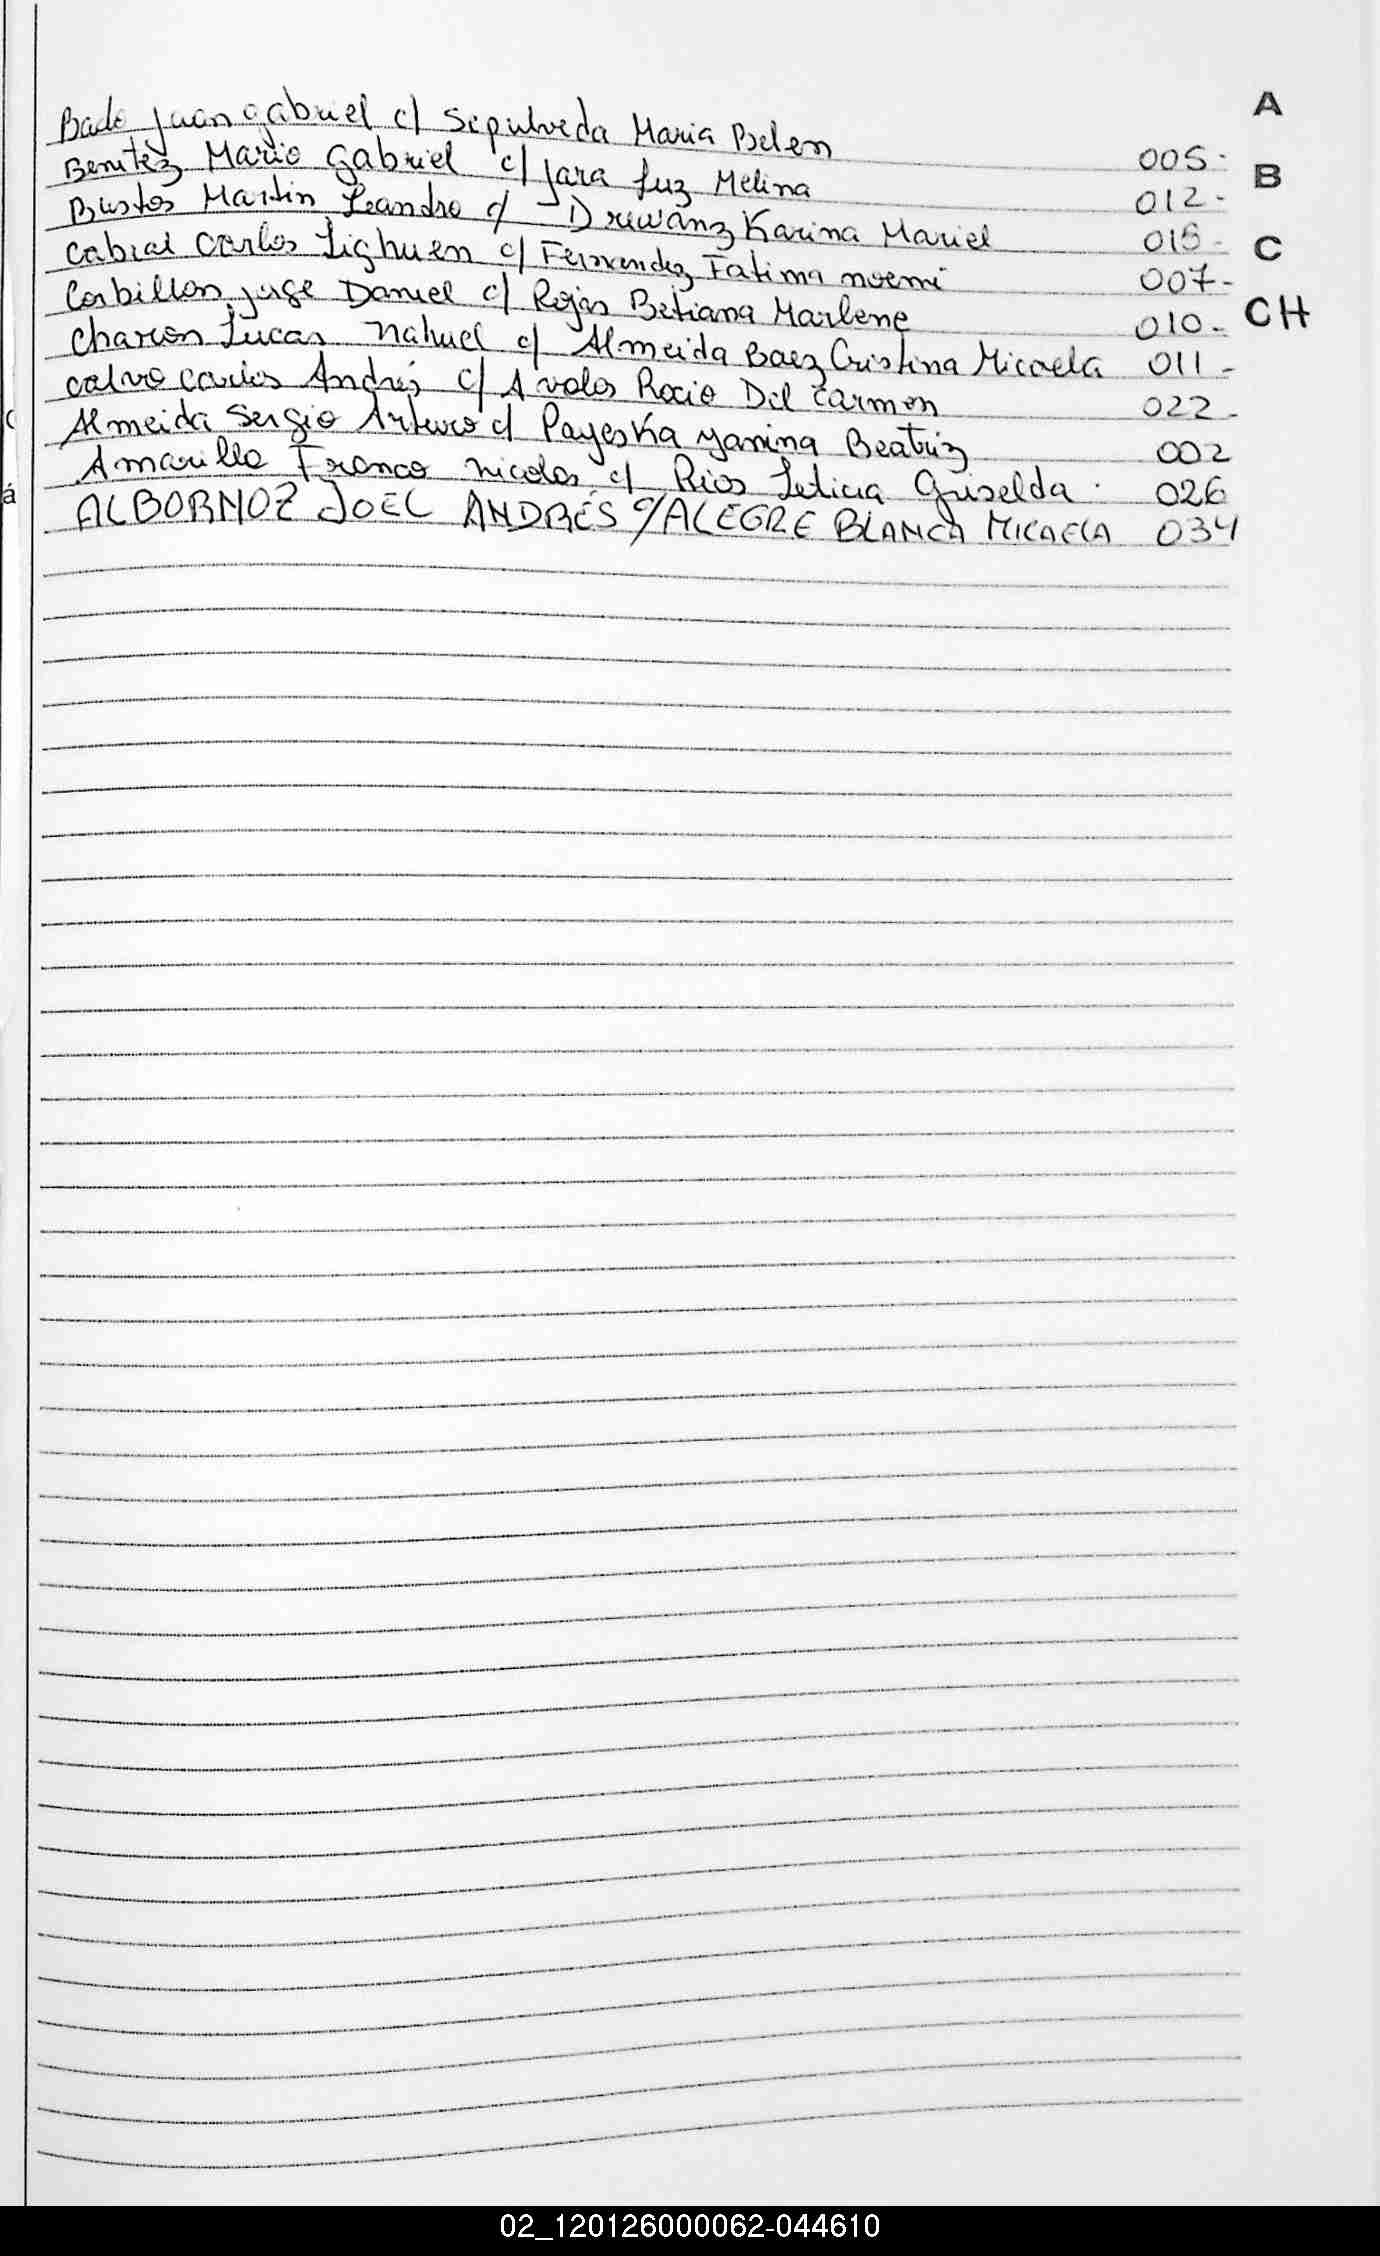 Bado Juan gabriel c/ Sepulveda Maria Belen 005-
A
Benitez Mario Gabriel c/ Jara Luz Melina 012-
B
Bustos Martin Leandro c/ Druwanz Karina Mariel 015-
C
Cabral Carlos Lighuen c/ Fernandez Fatima noemi 007-
Corbillon jorge Daniel c/ Rojas Betiana Marlene 010-
CH
Charcon Lucas nahuel c/ Almeida Baez Cristina Micaela 011-
calvo carlos Andrés c/ Avalos Rocio Del carmen 022-
Almeida Sergio Arturo c/ Payeska yanina Beatriz 002
Amarillo Franco nicolas c/ Rios Leticia Griselda. 026
ALBORNOZ JOEL ANDRÉS c/ ALEGRE BLANCA MICAELA 034
02_120126000062-044610